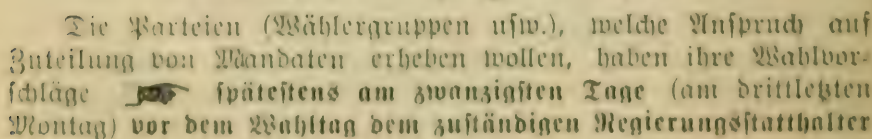 Die Parteien (Wählergruppen usw.), welche Anspruch auf
Zuteilung von Mandaten erheben wollen, haben ihre Wahlvor-
schläge ☛ spätestens am zwanzigsten Tage (am drittletzten
Montag) vor dem Wahltag dem zuständigen Regierungsstatthalter